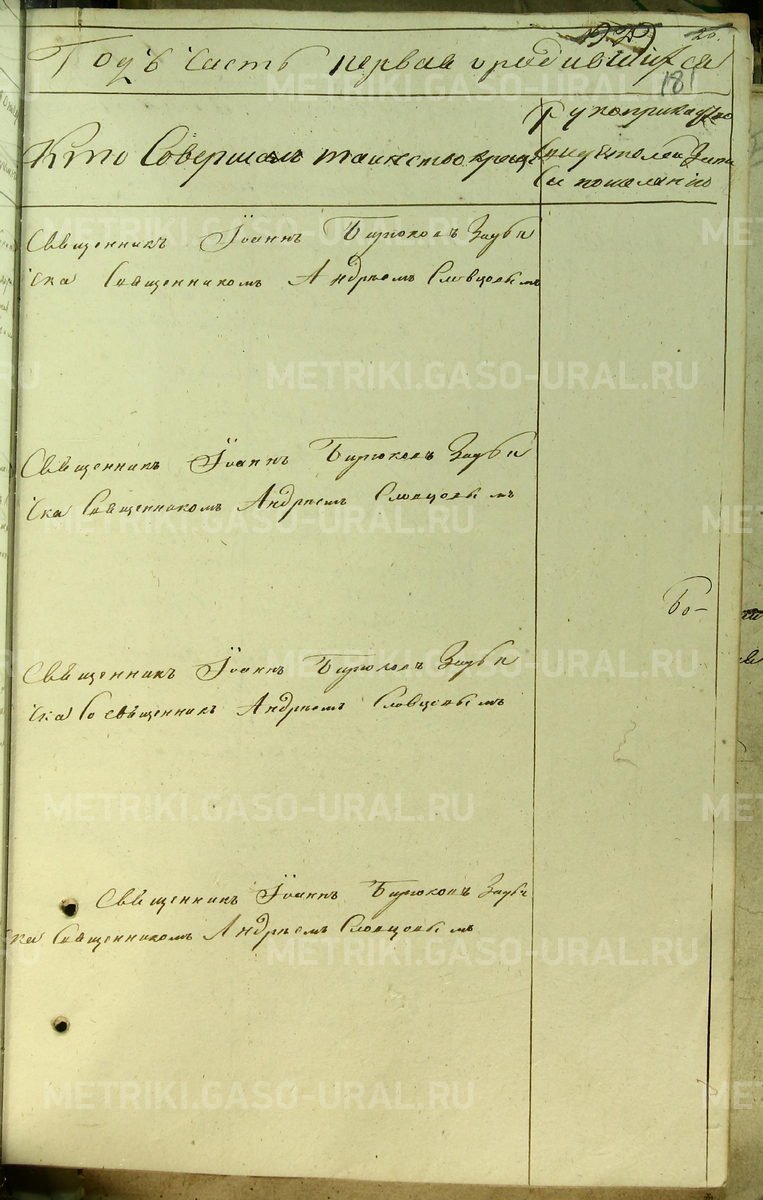 20.
181
Годъ Часть первая о родившихся
Кто Совершалъ таинство крещ.
Рукоприкладство
Свидетелей Записи
по желанію
Священникъ Іоаннъ Бирюковъ
Священникомъ Андреемъ Словцовымъ
Священникъ Іоаннъ Бирюковъ
Священникомъ Андреемъ Словцовымъ
Бо-
Священникъ Іоаннъ Бирюковъ
Со священникъ Андреемъ Словцовымъ
Священникъ Іоаннъ Бирюковъ
Священникомъ Андреемъ Словцовымъ
METRIKI.GASO-URAL.RU